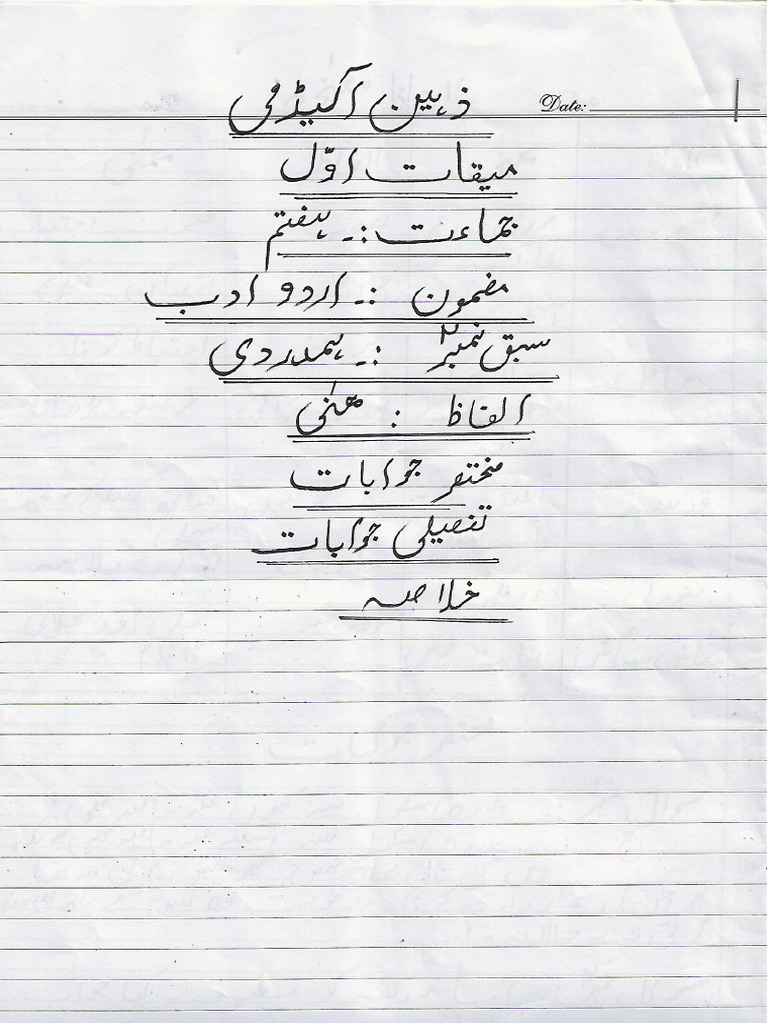 Date:
ذہین اکیڈمی
میقات اوّل
جماعت :۔ ہفتم
مضمون :۔ اردو ادب
سبق نمبر ۲ :۔ ہمدردی
الفاظ : معنی
مختصر جوابات
تفصیلی جوابات
خلاصہ